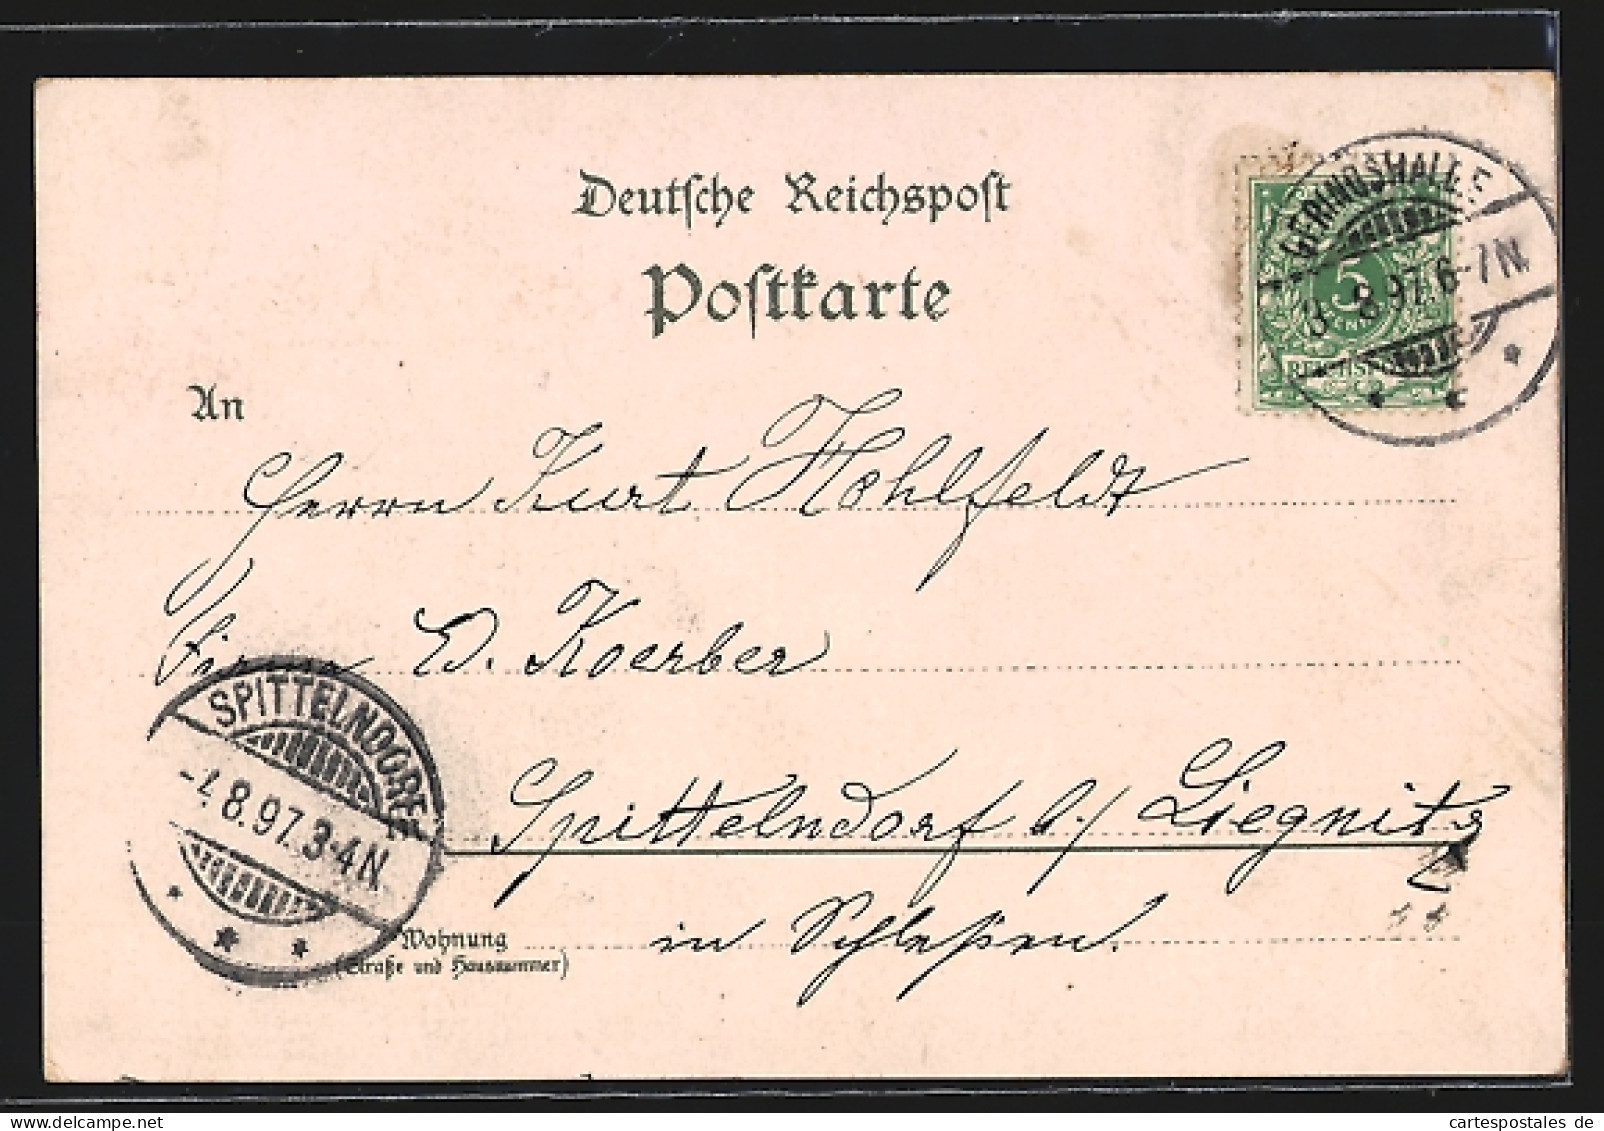 Deutsche Reichspost
Postkarte
GERINGSWALDE
8.97. 6-7N.
5
REICHSPOST
An
Herrn Kurt Hohlfeldt
Firma W. Koerber
SPITTELNDORF
8.97. 3-4N
Spittelndorf b/ Liegnitz
in Schlesien.
Wohnung
(Straße und Hausnummer)
cartespostales.de